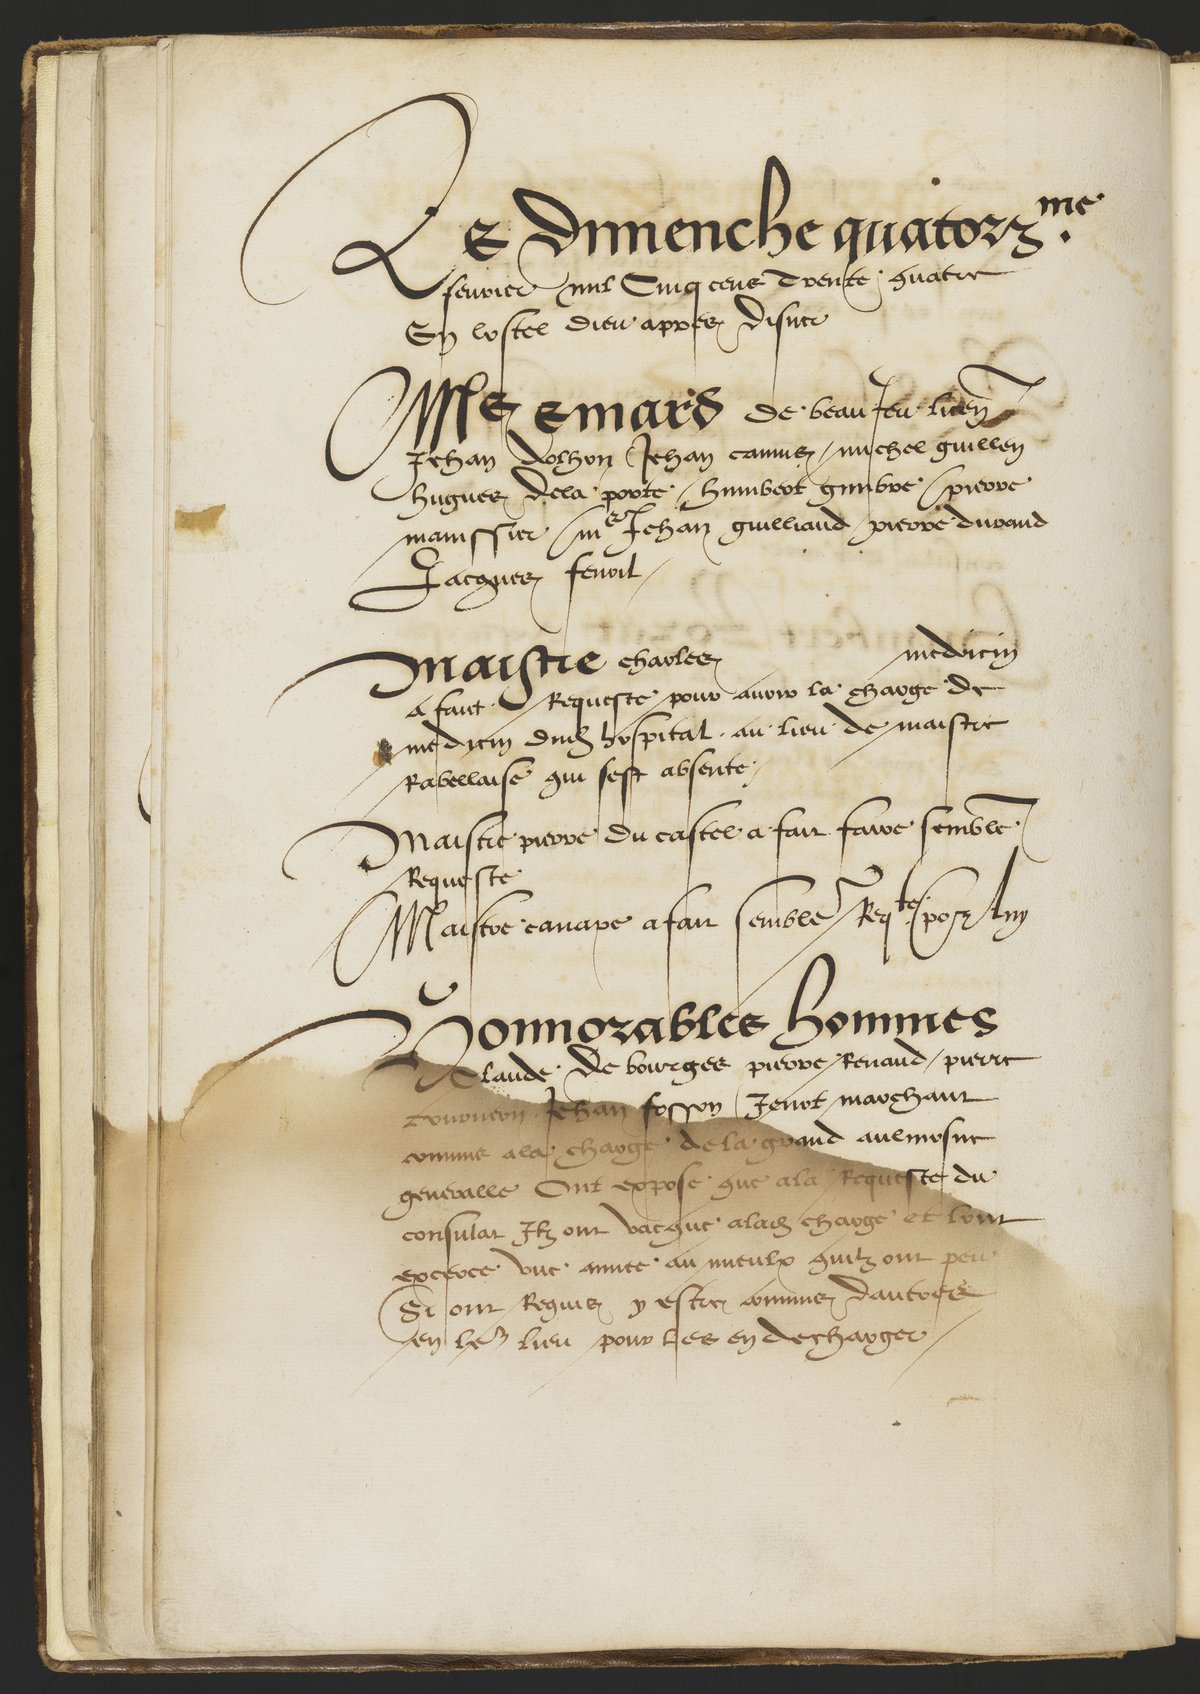 Le Dimenche quatorzme
feuvrier mil Cinq cens Trente quatre
En lostel dieu appres disner
Mes emard de beaujeu licen
Jehan dolhon Jehan camus / michel guillen
hugues dela porte / humbert gimbre / pierre
manissier / me Jehan guilliaud / pierre durand
Jacques fenoil /
Maistre charles medicin
a faict Requeste pour avoir la charge de
medicin dud hospital au lieu de maistre
Rabellaise qui sest absente /
Maistre pierre du castel a fait faire semble
Requeste
Maistre canape a fait semble Reqte por luy
Honnorables hommes
Claude de bourges pierre Renaud / pierre
tourneon Jehan fosson / Jenot marchant
commis ala charge dela grand aulmosne
generalle Ont expose que ala Requeste du
consulat Ilz ont vacque alad charge et lont
exerce une annee au mieulx quilz ont peu
Si ont Requis y estre commis dautres
en leur lieu pour les en decharger /